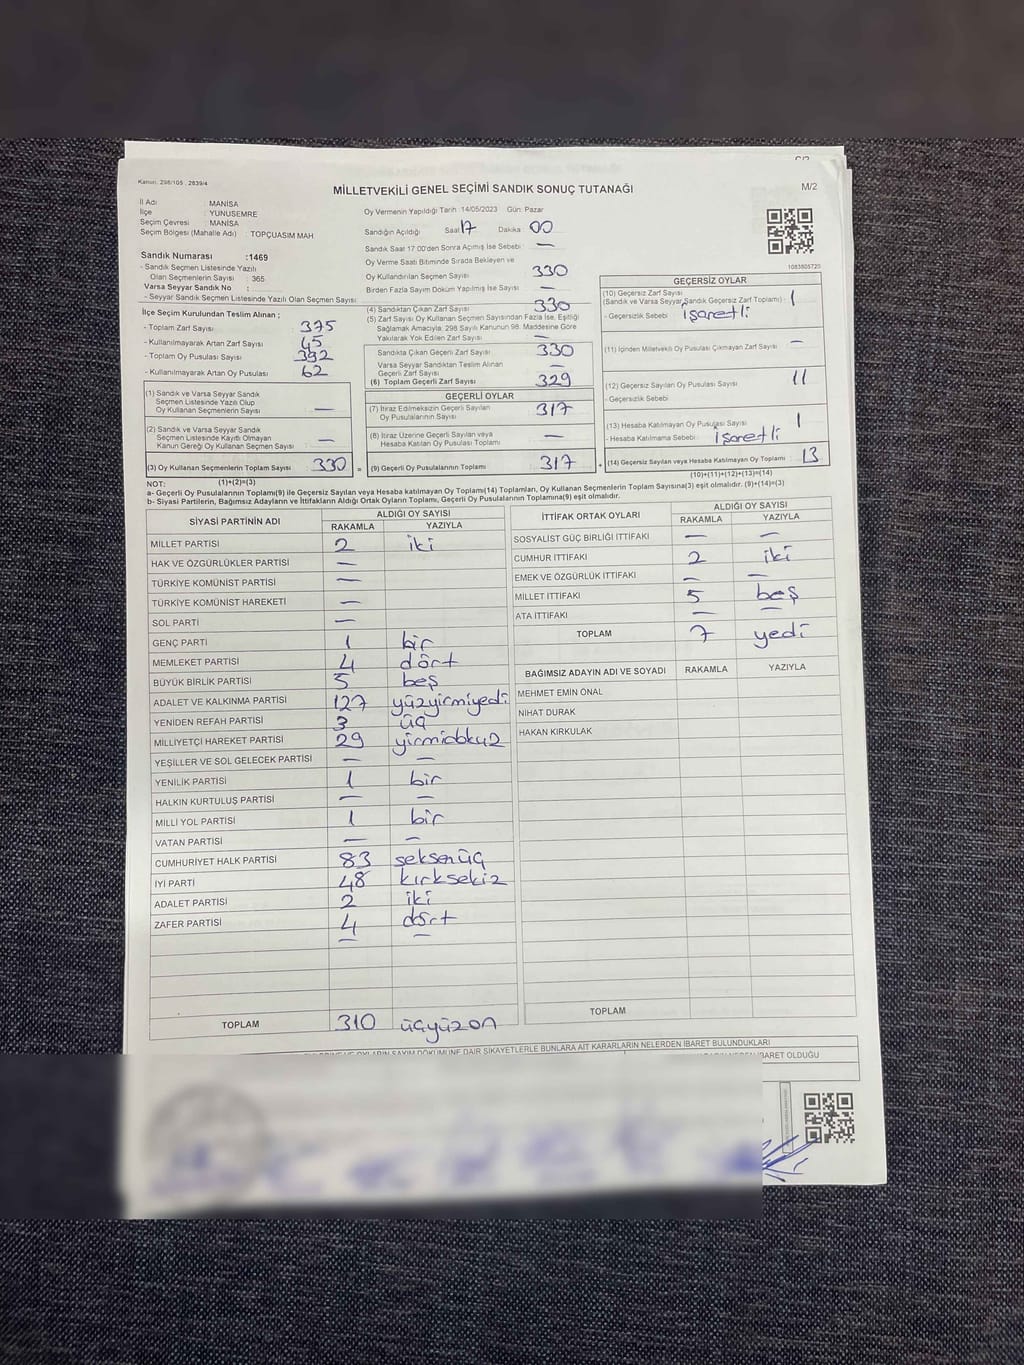 Kanun: 298/105 , 2839/4
MİLLETVEKİLİ GENEL SEÇİMİ SANDIK SONUÇ TUTANAĞI
M/2
İl Adı : MANİSA
İlçe : YUNUSEMRE
Seçim Çevresi : MANİSA
Seçim Bölgesi (Mahalle Adı) : TOPÇUASIM MAH
Sandık Numarası :1469
- Sandık Seçmen Listesinde Yazılı
Olan Seçmenlerin Sayısı : 365
Varsa Seyyar Sandık No :
- Seyyar Sandık Seçmen Listesinde Yazılı Olan Seçmen Sayısı :
İlçe Seçim Kurulundan Teslim Alınan ;
- Toplam Zarf Sayısı : 375
- Kullanılmayarak Artan Zarf Sayısı : 45
- Toplam Oy Pusulası Sayısı : 392
- Kullanılmayarak Artan Oy Pusulası : 62
(1) Sandık ve Varsa Seyyar Sandık
Seçmen Listesinde Yazılı Olup
Oy Kullanan Seçmenlerin Sayısı : —
(2) Sandık ve Varsa Seyyar Sandık
Seçmen Listesinde Kayıtlı Olmayan
Kanun Gereği Oy Kullanan Seçmen Sayısı : —
(3) Oy Kullanan Seçmenlerin Toplam Sayısı : 330 =
(1)+(2)=(3)
Oy Vermenin Yapıldığı Tarih :14/05/2023 Gün: Pazar
Sandığın Açıldığı : Saat 17 Dakika 00
Sandık Saat 17:00'den Sonra Açılmış İse Sebebi : —
Oy Verme Saati Bitiminde Sırada Bekleyen ve
Oy Kullandırılan Seçmen Sayısı : 330
Birden Fazla Sayım Döküm Yapılmış İse Sayısı : —
(4) Sandıktan Çıkan Zarf Sayısı : 330
(5) Zarf Sayısı Oy Kullanan Seçmen Sayısından Fazla İse, Eşitliği
Sağlamak Amacıyla; 298 Sayılı Kanunun 98. Maddesine Göre
Yakılarak Yok Edilen Zarf Sayısı : —
Sandıkta Çıkan Geçerli Zarf Sayısı : 330
Varsa Seyyar Sandıktan Teslim Alınan
Geçerli Zarf Sayısı : —
(6) Toplam Geçerli Zarf Sayısı : 329
GEÇERLİ OYLAR
(7) İtiraz Edilmeksizin Geçerli Sayılan
Oy Pusulalarının Sayısı : 317
(8) İtiraz Üzerine Geçerli Sayılan veya
Hesaba Katılan Oy Pusulası Toplamı : —
(9) Geçerli Oy Pusulalarının Toplamı : 317 +
1083805720
GEÇERSİZ OYLAR
(10) Geçersiz Zarf Sayısı
(Sandık ve Varsa Seyyar Sandık Geçersiz Zarf Toplamı) : 1
- Geçersizlik Sebebi : işaretli
(11) İçinden Milletvekili Oy Pusulası Çıkmayan Zarf Sayısı : —
(12) Geçersiz Sayılan Oy Pusulası Sayısı : 11
- Geçersizlik Sebebi :
(13) Hesaba Katılmayan Oy Pusulası Sayısı : 1
- Hesaba Katılmama Sebebi : işaretli
(14) Geçersiz Sayılan veya Hesaba Katılmayan Oy Toplamı : 13
(10)+(11)+(12)+(13)=(14)
NOT:
a- Geçerli Oy Pusulalarının Toplamı(9) ile Geçersiz Sayılan veya Hesaba katılmayan Oy Toplamı(14) Toplamları, Oy Kullanan Seçmenlerin Toplam Sayısına(3) eşit olmalıdır. (9)+(14)=(3)
b- Siyasi Partilerin, Bağımsız Adayların ve İttifakların Aldığı Ortak Oyların Toplamı, Geçerli Oy Pusulalarının Toplamına(9) eşit olmalıdır.
SİYASİ PARTİNİN ADI
ALDIĞI OY SAYISI
RAKAMLA YAZIYLA
MİLLET PARTİSİ 2 iki
HAK VE ÖZGÜRLÜKLER PARTİSİ —
TÜRKİYE KOMÜNİST PARTİSİ —
TÜRKİYE KOMÜNİST HAREKETİ —
SOL PARTİ —
GENÇ PARTİ 1 bir
MEMLEKET PARTİSİ 4 dört
BÜYÜK BİRLİK PARTİSİ 5 beş
ADALET VE KALKINMA PARTİSİ 127 yüzyirmiyedi
YENİDEN REFAH PARTİSİ 3 üç
MİLLİYETÇİ HAREKET PARTİSİ 29 yirmidokuz
YEŞİLLER VE SOL GELECEK PARTİSİ — —
YENİLİK PARTİSİ 1 bir
HALKIN KURTULUŞ PARTİSİ — —
MİLLİ YOL PARTİSİ 1 bir
VATAN PARTİSİ — —
CUMHURİYET HALK PARTİSİ 83 seksenüç
İYİ PARTİ 48 kırksekiz
ADALET PARTİSİ 2 iki
ZAFER PARTİSİ 4 dört
— —
TOPLAM 310 üçyüzon
İTTİFAK ORTAK OYLARI
ALDIĞI OY SAYISI
RAKAMLA YAZIYLA
SOSYALİST GÜÇ BİRLİĞİ İTTİFAKI — —
CUMHUR İTTİFAKI 2 iki
EMEK VE ÖZGÜRLÜK İTTİFAKI — —
MİLLET İTTİFAKI 5 beş
ATA İTTİFAKI — —
TOPLAM 7 yedi
BAĞIMSIZ ADAYIN ADI VE SOYADI RAKAMLA YAZIYLA
MEHMET EMİN ÖNAL
NİHAT DURAK
HAKAN KIRKULAK
TOPLAM
DÖKÜMÜNE DAİR ŞİKAYETLERLE BUNLARA AİT KARARLARIN NELERDEN İBARET BULUNDUKLARI
İBARET OLDUĞU